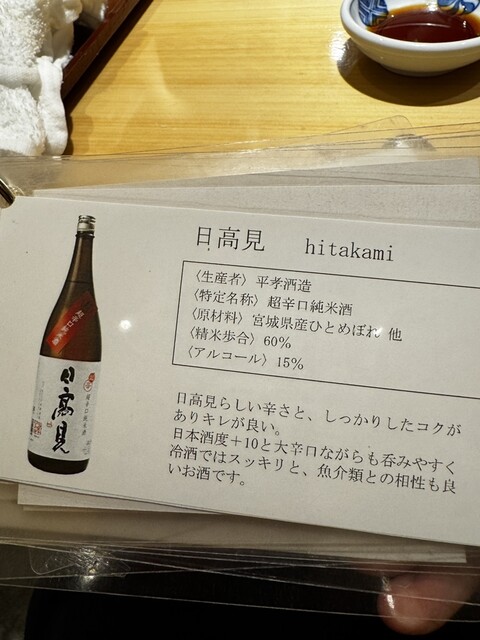 日高見 hitakami
〈生産者〉平孝酒造
〈特定名称〉超辛口純米酒
〈原材料〉宮城県産ひとめぼれ 他
〈精米歩合〉60%
〈アルコール〉15%
日高見らしい辛さと、しっかりしたコクが
ありキレが良い。
日本酒度＋10と大辛口ながらも呑みやすく
冷酒ではスッキリと、魚介類との相性も良
いお酒です。
超辛口純米酒
日高見